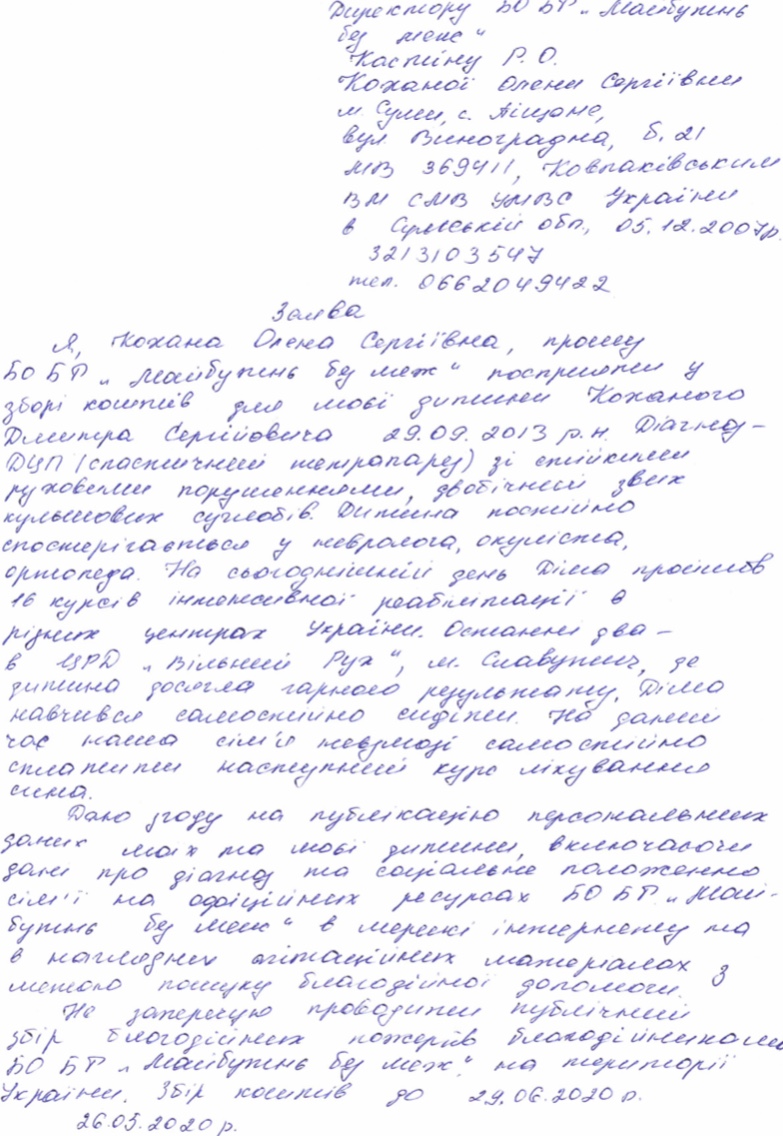 Директору БО БФ „Майбутнь
без меж"
Каспіну Р. О.
Коханої Олени Сергіївни
м. Суми, с. Піщане,
вул. Виноградна, б. 21
МВ 369411, Ковпаківським
ВМ СМВ УМВС України
в Сумській обл., 05.12.2007р.
3213103547
тел. 0662049422
Заява
Я, Кохана Олена Сергіївна, прошу
БО БФ „Майбутнь без меж" посприяти у
зборі коштів для моєї дитини Коханого
Дмитра Сергійовича 29.09.2013 р.н. Діагноз-
ДЦП (спастичний тетрапарез) зі стійкими
руховими порушеннями, двобічний звих
кульшових суглобів. Дитина постійно
спостерігається у невролога, окуліста,
ортопеда. На сьогоднішній день Діма пройшов
16 курсів інтенсивної реабілітації в
різних центрах України. Останні два -
в ЦРД „Вільний Рух", м. Славутич, де
дитина досягла гарного результату, Діма
навчився самостійно сидіти. На даний
час наша сім'я невзмозі самостійно
сплатити наступний курс лікування
сина.
Даю згоду на публікацію персональних
даних моїх та моєї дитини, включаючи
дані про діагноз та соціальне положення
сім'ї на офіційних ресурсах БО БФ „Май-
бутнь без меж" в мережі інтернету та
в наглядних агітаційних матеріалах з
метою пошуку благодійної допомоги.
Не заперечую проводити публічний
збір благодійних пожертв благодійниками
БО БФ „Майбутнь без меж" на території
України. Збір коштів до 29.06.2020 р.
26.05.2020 р.